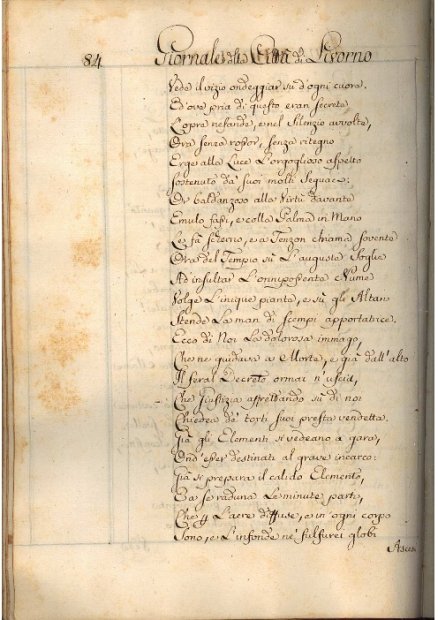 84 Giornale della Città di Livorno
Vede il vizio ondeggiar su d'ogni cuore.
Ed ove pria di questo eran secrete
L'opre nefande, e nel Silenzio avvolte,
Ora senza rossor, senza ritegno
Erge alla Luce L'orgoglioso aspetto
Sostenuto da' suoi molti Seguaci:
Or baldanzoso alla Virtù davante
Emulo fassi, e colla Palma in Mano
Le fà scherno, e a Tenzon chiama sovente
Ora del Tempio sù L'auguste Soglie
Ad insultar L'onnipossente Nume
Volge L'inique piante, e su gli Altari
Stende La man di scempi apportatrice.
Ecco di Noi La dolorosa immago,
Che ne guidava a Morte, e già dall'alto
Il feral Decreto ormai n'uscia,
Che Giustizia affrettando su di noi
Chiedea de' torti suoi presta vendetta.
Già gli Elementi si vedeano a gara,
Ond'esser destinati al grave incarco:
Già si prepara il calido Elemento,
E a se raduna Le minute parti,
Che p L'aere diffuse, e in ogni corpo
Sono, e L'infonde ne' sulfurei globi